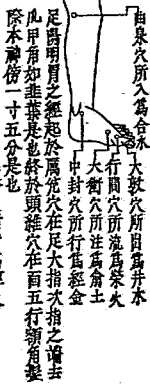 曲泉穴所入爲合水
大敦穴所出爲井木
行間穴所流爲榮火
大衝穴所注爲俞土
中封穴所行爲經金
足陽明胃之經起於厲兌穴在足大指次指之端去
爪甲角如韭葉是也終於頭維穴在百五行額角髮
際本神傍一寸五分是也